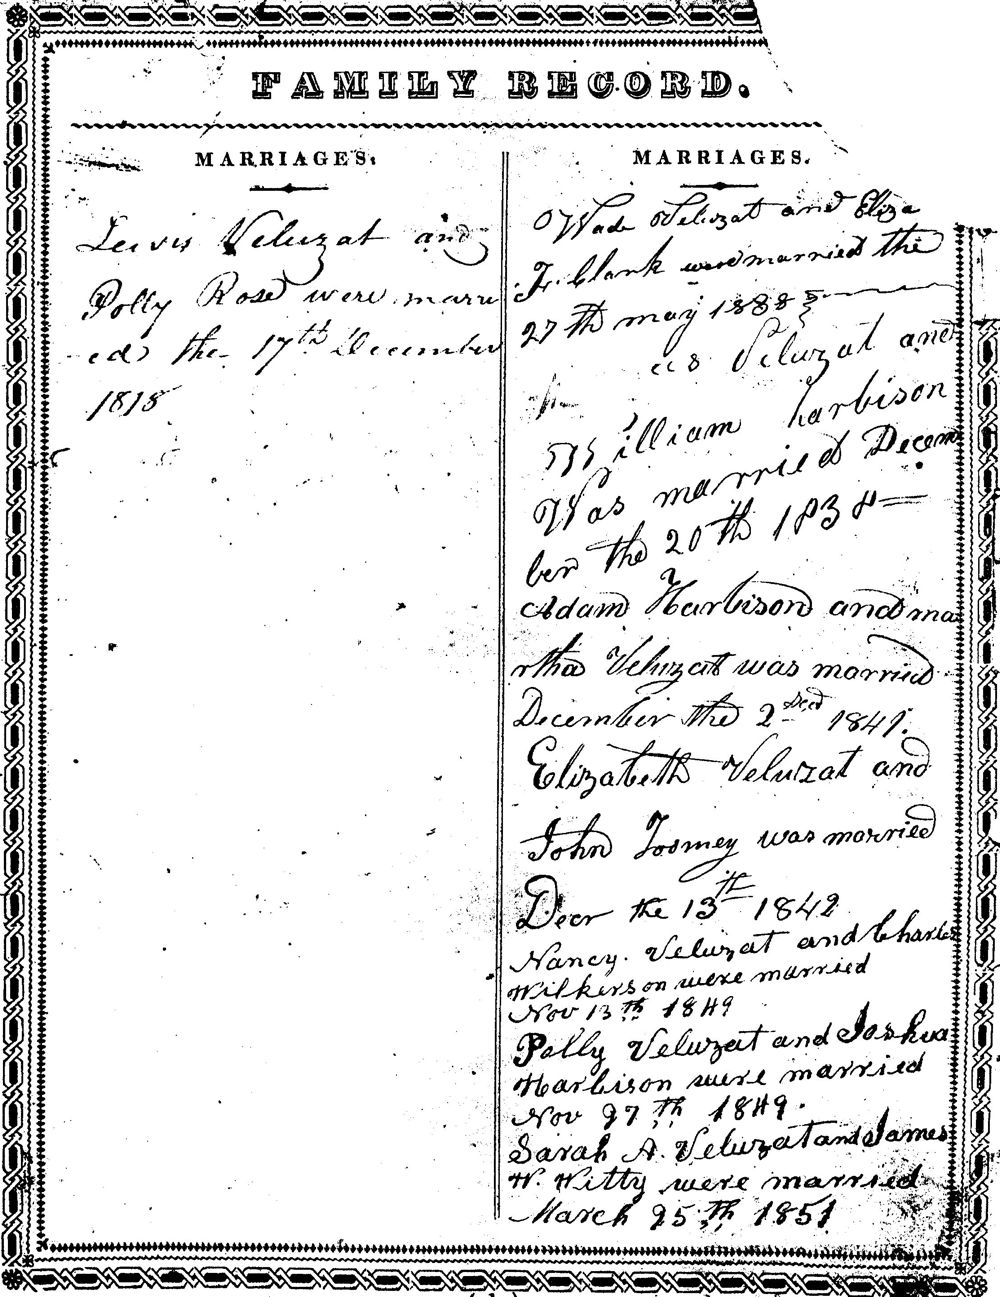 FAMILY RECORD.
MARRIAGES.
Lewis Veluzat and
Polly Rose were marri
ed the 17th December
1818
MARRIAGES.
Wade Veluzat and Eliza
J. Clark were married the
27th may 1838
Veluzat and
William harbison
Was married Decem
ber the 20th 1838
Adam Harbison and ma
rtha Veluzat was married
December the 2nd 1841.
Elizabeth Veluzat and
John Toomey was married
Decr the 13th 1842
Nancy. Veluzat and Charles
Wilkerson were married
Nov 13th 1849
Polly Veluzat and Joshua
Harbison were married
Nov 27th 1849.
Sarah A. Veluzat and James
W. Witty were married
March 25th 1851